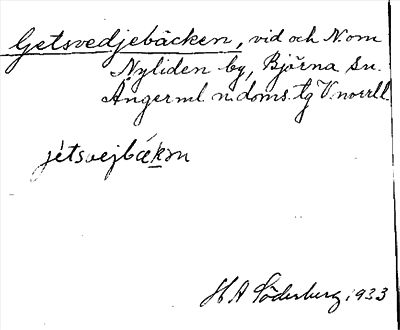 Getsvedjebäcken, vid och N om
Nyliden by, Björna sn.
Ångerml. n. doms. tg V.norrl.
jétsvejbäkɱ
H A Söderberg 1933